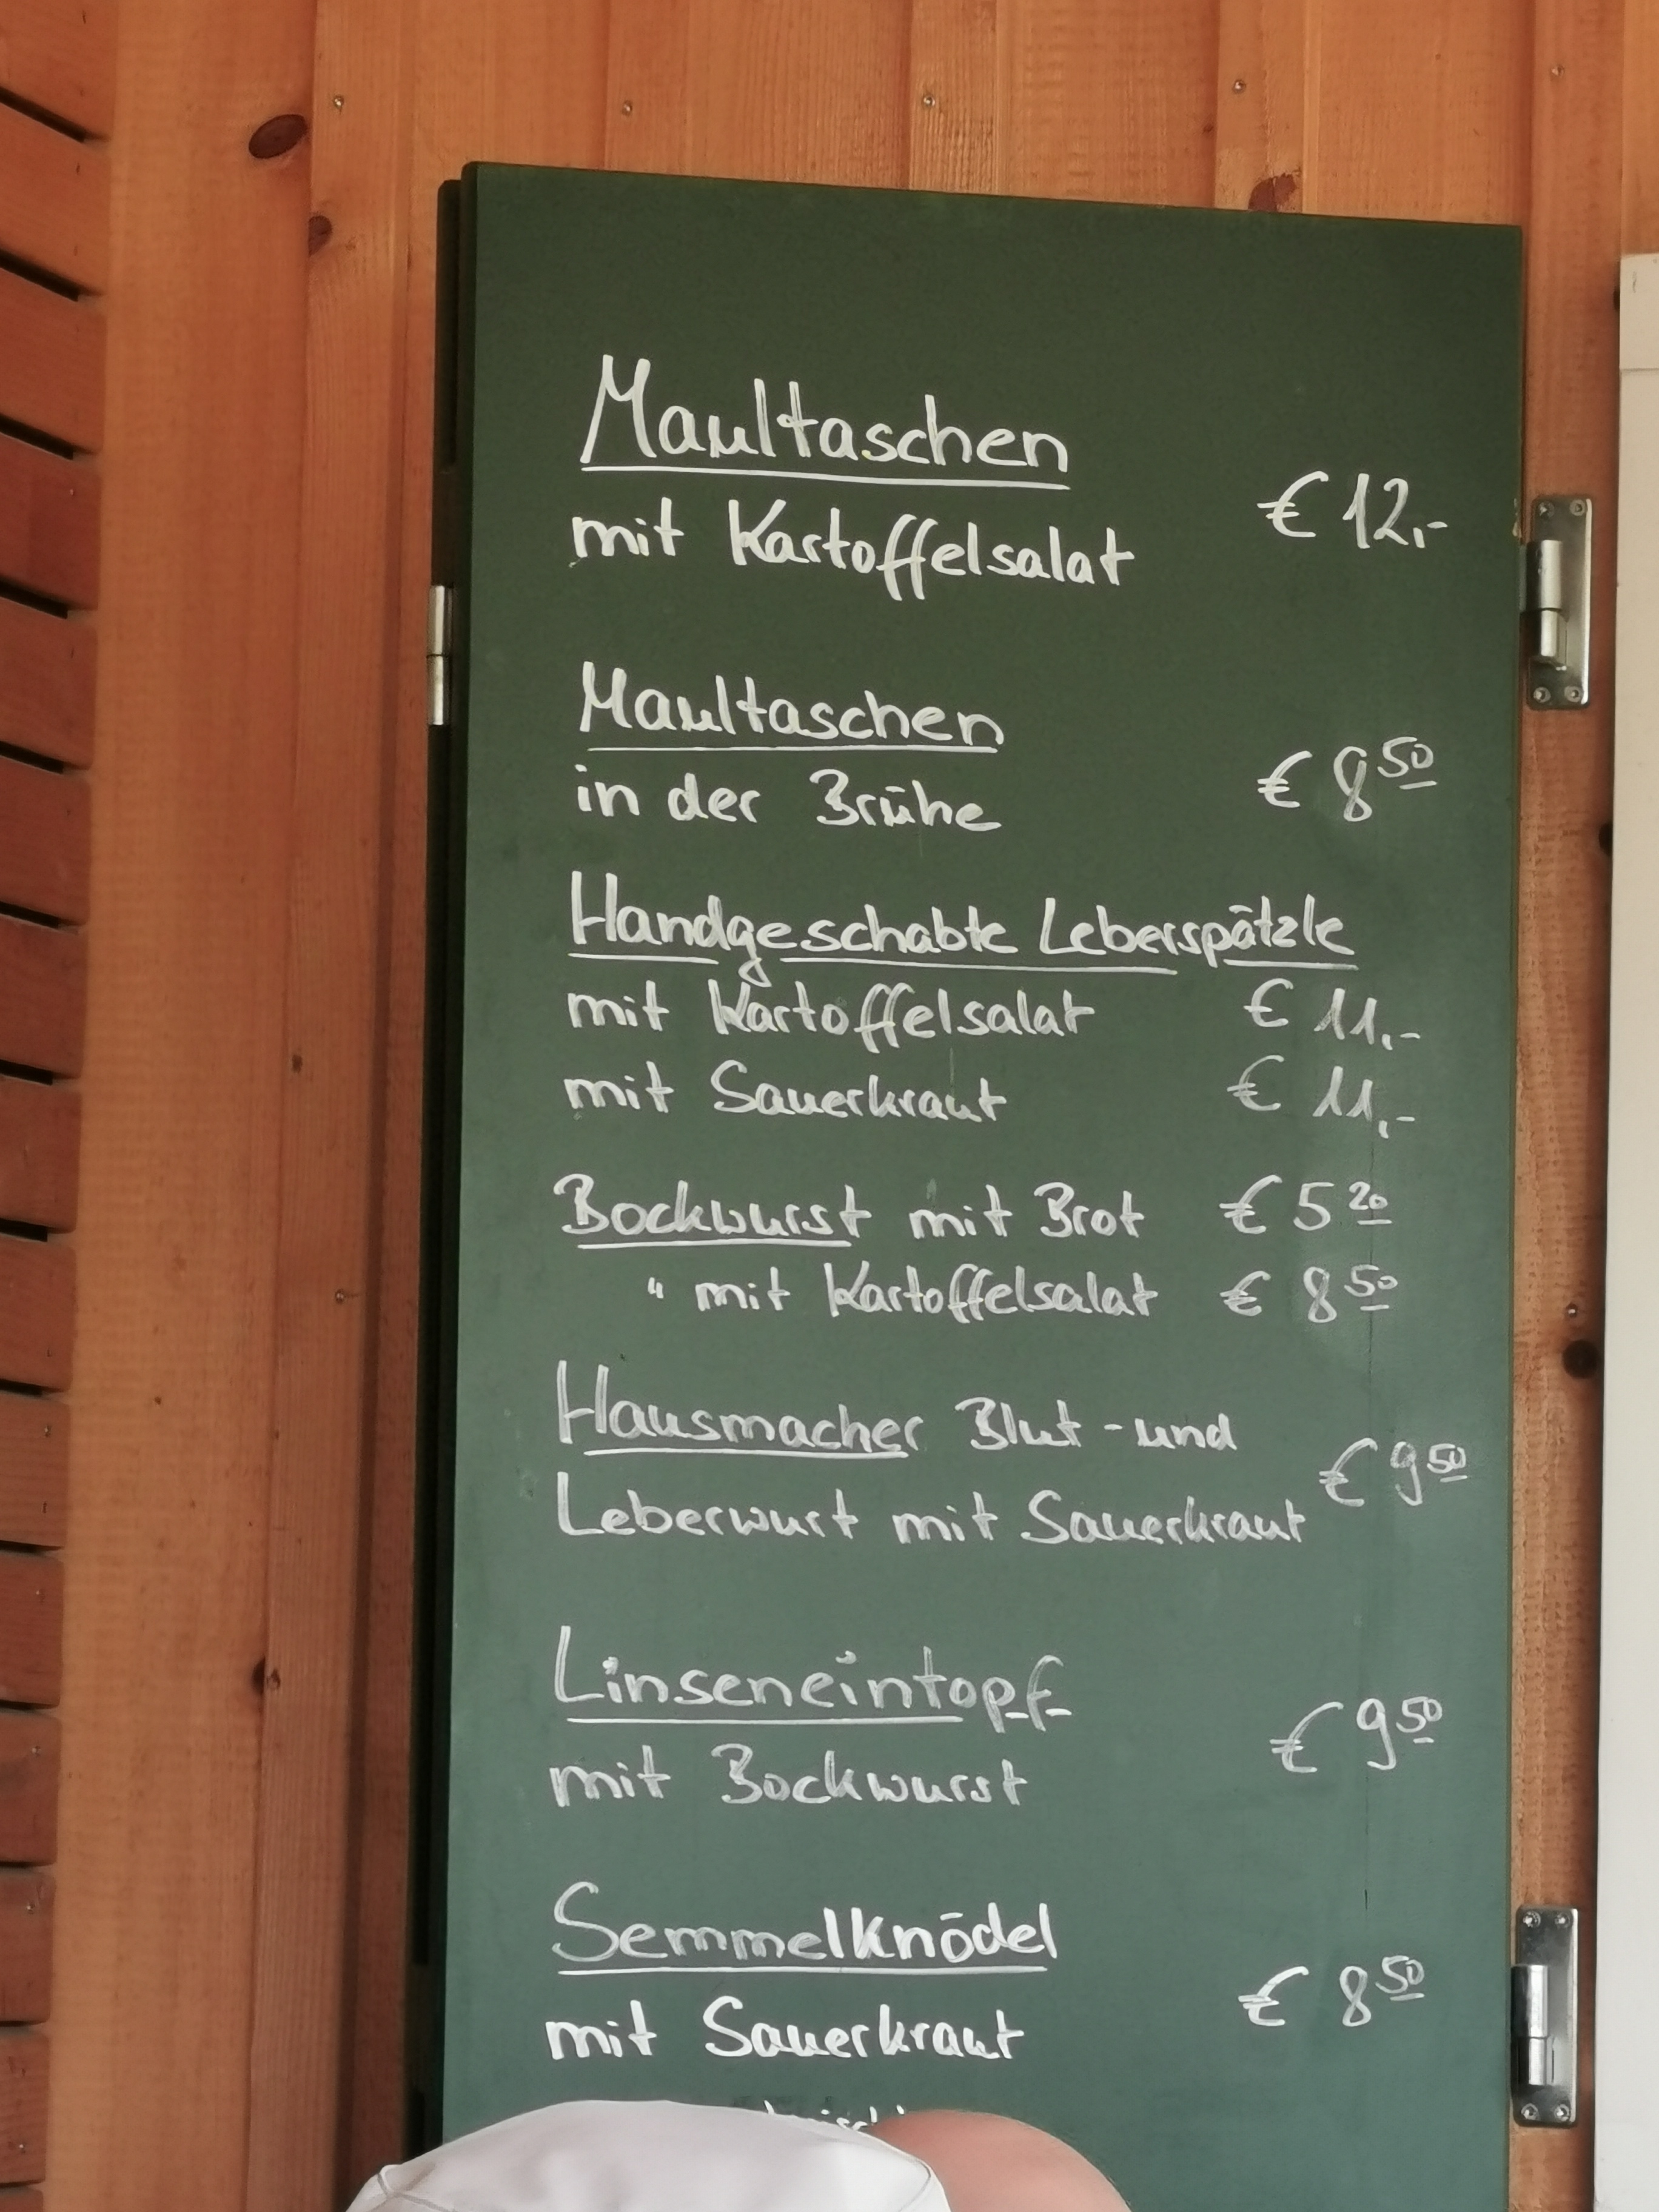 Maultaschen
mit Kartoffelsalat € 12,-
Maultaschen
in der Brühe € 8 50
Handgeschabte Leberspätzle
mit Kartoffelsalat € 11,-
mit Sauerkraut € 11,-
Bockwurst mit Brot € 5 20
" mit Kartoffelsalat € 8 50
Hausmacher Blut- und
Leberwurt mit Sauerkraut € 9 50
Linseneintopf
mit Bockwurst € 9 50
Semmelknödel
mit Sauerkraut € 8 50